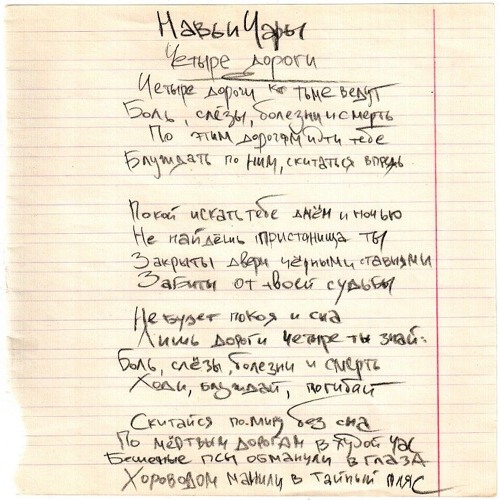 Навьи Чары
Четыре дороги
Четыре дороги ко тьме ведут
Боль, слёзы, болезни и смерть
По этим дорогам идти тебе
Блуждать по ним, скитаться впредь
Покой искать тебе днём и ночью
Не найдёшь пристанища ты
Закрыты двери чёрными ставнями
Забиты от твоей судьбы
Не будет покоя и сна
Лишь дороги четыре ты знай:
Боль, слёзы, болезни и смерть
Ходи, блуждай, погибай
Скитайся по миру без сна
По мёртвым дорогам в худой час
Бешеные псы обманули в глаза
Хороводом манили в тайный пляс